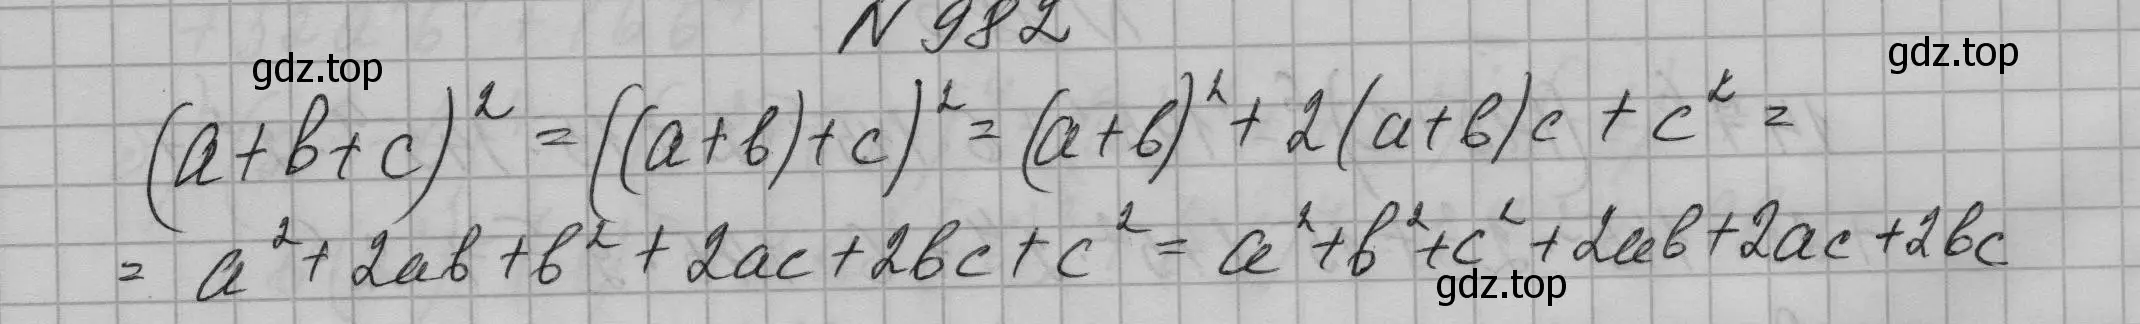 N 982
gdz.top
gdz.top
(a+b+c)² = ((a+b)+c)² = (a+b)² + 2(a+b)c + c² =
= a² + 2ab + b² + 2ac + 2bc + c² = a² + b² + c² + 2ab + 2ac + 2bc
gdz.top